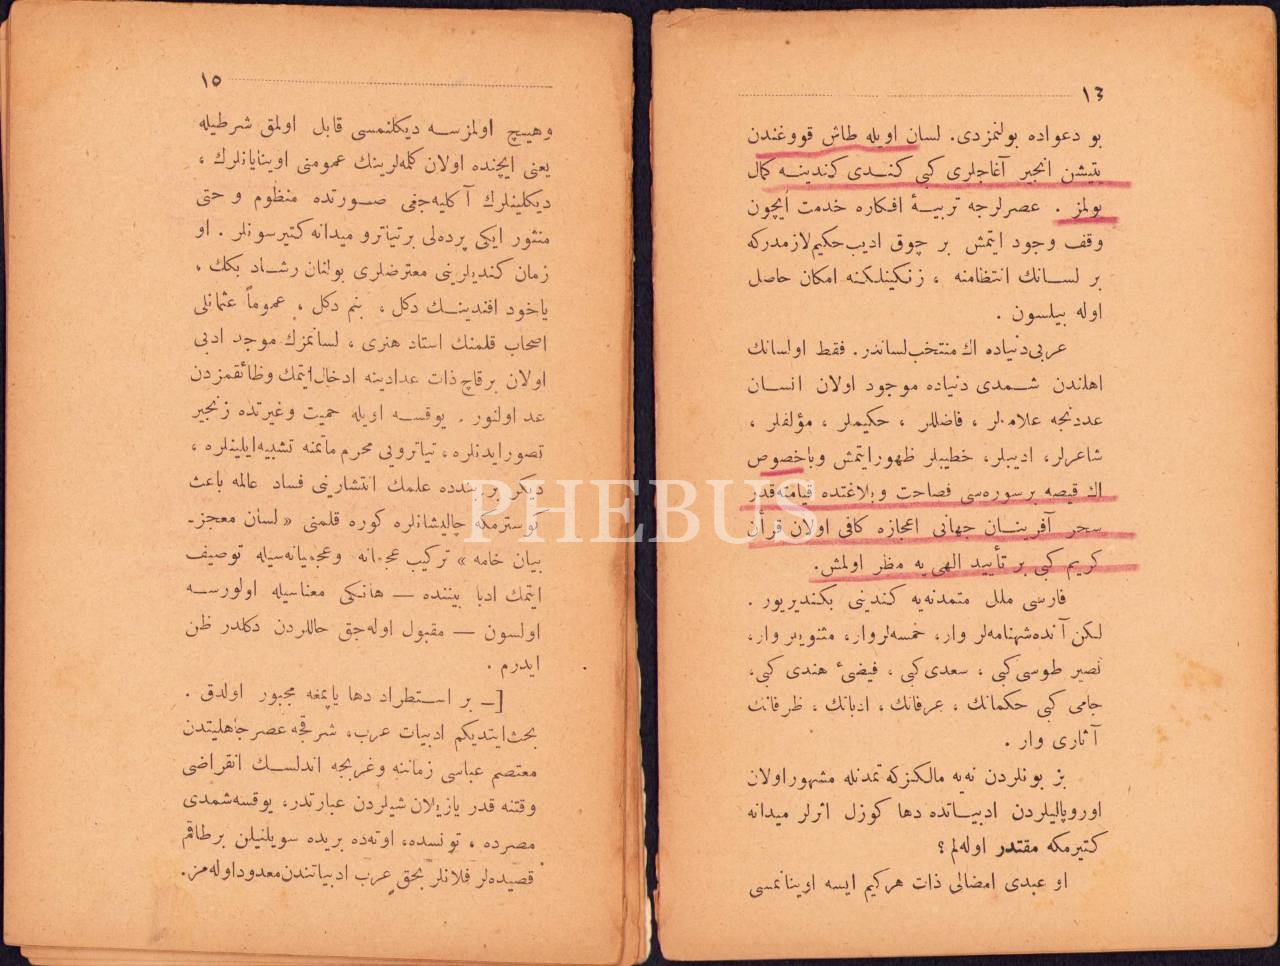 ١٣
بو دعواده بولنمزدی. لسان اویله طاش قووغندن
یتیشن انجیر آغاجلری کبی کندی کندینه کمال
بولمز . عصرلرجه تربیهٔ افکاره خدمت ایچون
وقف وجود ایتمش بر چوق ادیب حکیم لازمدرکه
بر لسانك انتظامنه ، زنکینلکنه امکان حاصل
اوله بیلسون .
عربی دنیاده اك منتخب لساندر. فقط اولسانك
اهلندن شمدی دنیاده موجود اولان انسان
عددنجه علامه‌لر ، فاضللر ، حکیملر ، مؤلفلر ،
شاعرلر، ادیبلر، خطیبلر ظهور ایتمش وباخصوص
اك قیصه بر سوره‌سی فصاحت وبلاغتده قیامته قدر
سحر آفرینان جهانی اعجازه کافی اولان قرآن
کریم کبی بر تأیید الهی یه مظهر اولمش.
فارسی ملل متمدنه‌یه کندینی بکندیریور .
لکن آنده شهنامه‌لر وار، خمسه‌لر وار، مثنویلر وار،
نصیر طوسی کبی ، سعدی کبی ، فیضیٔ هندی کبی،
جامی کبی حکمانك ، عرفانك ، ادبانك ، ظرفانك
آثاری وار .
بز بونلردن نه‌یه مالکزکه تمدنله مشهور اولان
اوروپالیلردن ادبیاتده دها کوزل اثرلر میدانه
کتیرمکه مقتدر اوله‌لم ؟
او عبدی امضالی ذات هرکیم ایسه اوینانمسی
١٥
وهیچ اولمزسه دیکلنمسی قابل اولمق شرطیله
یعنی ایچنده اولان کلمه‌لرینك عمومنی اوینایانلرك ،
دیکلینلرك آکلیه‌جغی صورتده منظوم و حتی
منثور ایکی پرده‌لی بر تیاترو میدانه کتیرسونلر . او
زمان کندیلرینی معترضلری بولنان رشاد بکك ،
یاخود افندینك دکل ، بنم دکل ، عموماً عثمانلی
اصحاب قلمنك استاد هنری ، لسانمزك موجد ادبی
اولان برقاچ ذات عدادینه ادخال ایتمك وظائفمزدن
عد اولنور . یوقسه اویله حمیت وغیرتده زنجیر
تصور ایدنلره ، تیاترویی محرم ماتمنه تشبیه ایلینلره ،
دیکر بر بندده علمك انتشارینی فساد عالمه باعث
کوسترمکه چالیشانلره کوره قلمنی « لسان معجز ـ
بیان خامه » ترکیب عجمانه وعجمیانه‌سیله توصیف
ایتمك ادبا بیننده — هانکی معناسیله اولورسه
اولسون — مقبول اوله‌جق حاللردن دکلدر ظن
ایدرم .
[ـ بر استطراد دها یاپمغه مجبور اولدق .
بحث ایتدیکم ادبیات عرب، شرقجه عصر جاهلیتدن
معتصم عباسی زماننه وغربجه اندلسك انقراضی
وقتنه قدر یازیلان شیلردن عبارتدر، یوقسه شمدی
مصرده ، تونسده، اوته‌ده بریده سویلنیلن برطاقم
قصیده‌لر فلانلر بحق عرب ادبیاتندن معدود اوله‌مز.
PHEBUS